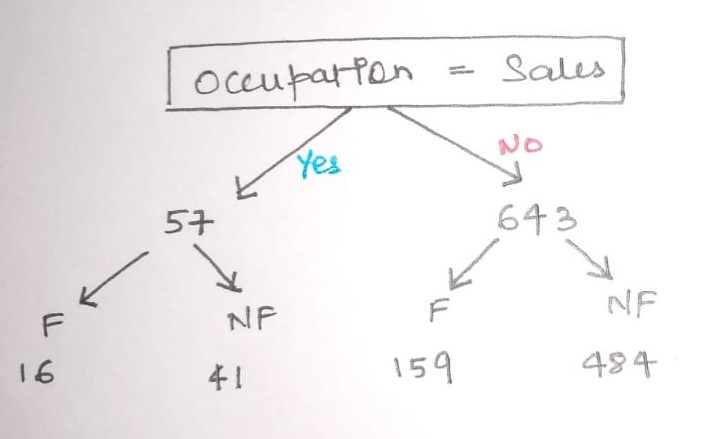 Occupation = Sales
Yes
NO
57
643
F
NF
F
NF
16
41
159
484